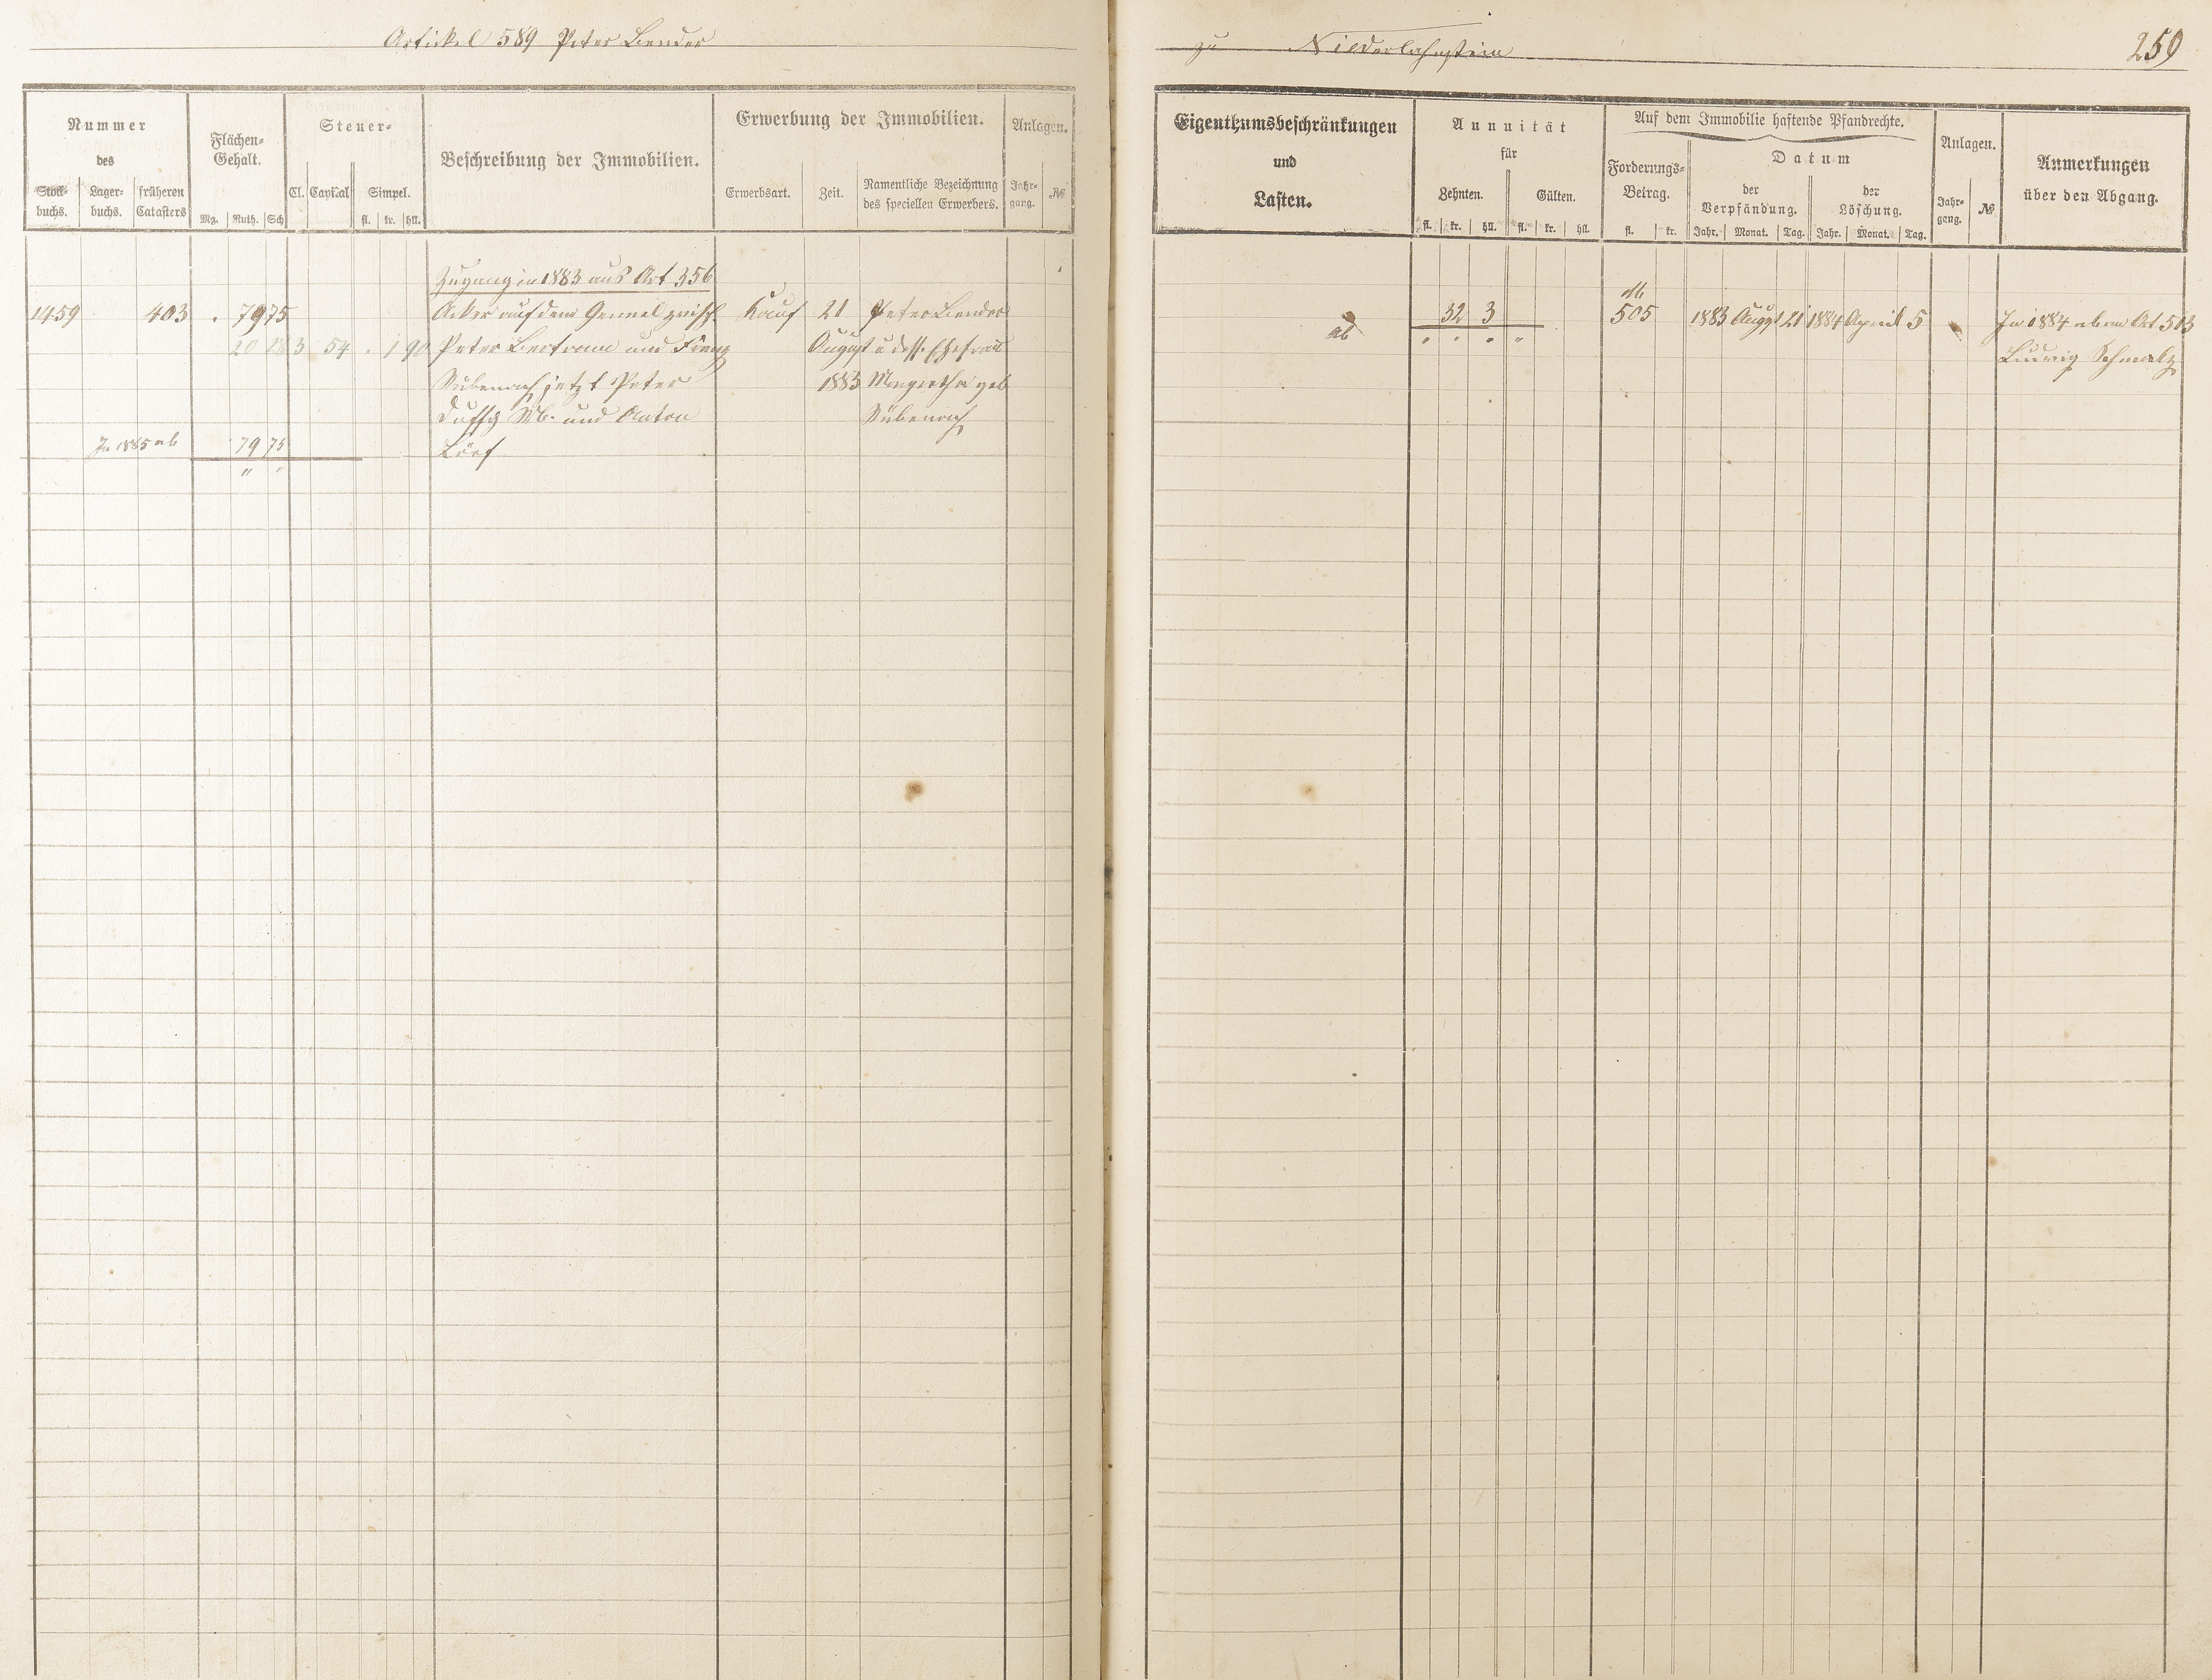 Artickel 589 Peter Bender
zu Niederlahnstein
259
Nummer
des
Stock-
buchs.
Lager-
buchs.
früheren
Catasters
Flächen-
Gehalt.
Mg. Ruth. Sch
Steuer-
Cl. Capital Simpel.
fl. kr. hll.
Beschreibung der Immobilien.
Erwerbung der Immobilien.
Erwerbsart. Zeit.
Namentliche Bezeichnung
des speciellen Erwerbers.
Anlagen.
Jahr-
gang. №
Zugang in 1883 aus Art 356
1459 403 . 79 75 Acker auf dem Gennel zwisch. Kauf 21 Peter Bender
20 28 3 54 . 1 90 Peter Bertram und Franz August u dess. Ehefrau
Rübenach jetzt Peter 1883 Margretha geb
Duffy Wb. und Anton Rübenach
In 1885 ab 79 75 Lörf
" "
Eigenthumsbeschränkungen
und
Lasten.
Annuität
für
Zehnten. Gülten.
fl. kr. hll. fl. kr. hll.
Auf dem Immobilie haftende Pfandrechte.
Forderungs-
Betrag.
fl. kr.
Datum
der
Verpfändung.
der
Löschung.
Jahr. Monat. Tag. Jahr. Monat. Tag.
Anlagen.
Jahr-
gang. №
Anmerkungen
über den Abgang.
M
32 3 505 1883 August 21 1884 April 5 In 1884 ab an Art 513
ab " " " " Ludwig Schmalz